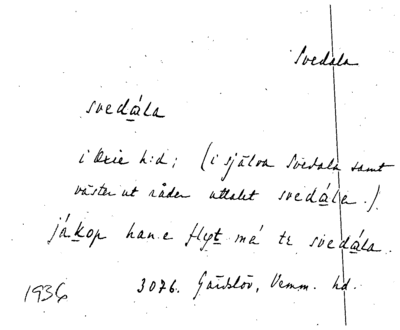 Svedala
svedála
i Oxie h:d; (i själva Svedala samt
väster ut råder uttalet svedále.)
jákop han e flyt má te svedála.
3076. Gärdslöv, Vemm. hd.
1936